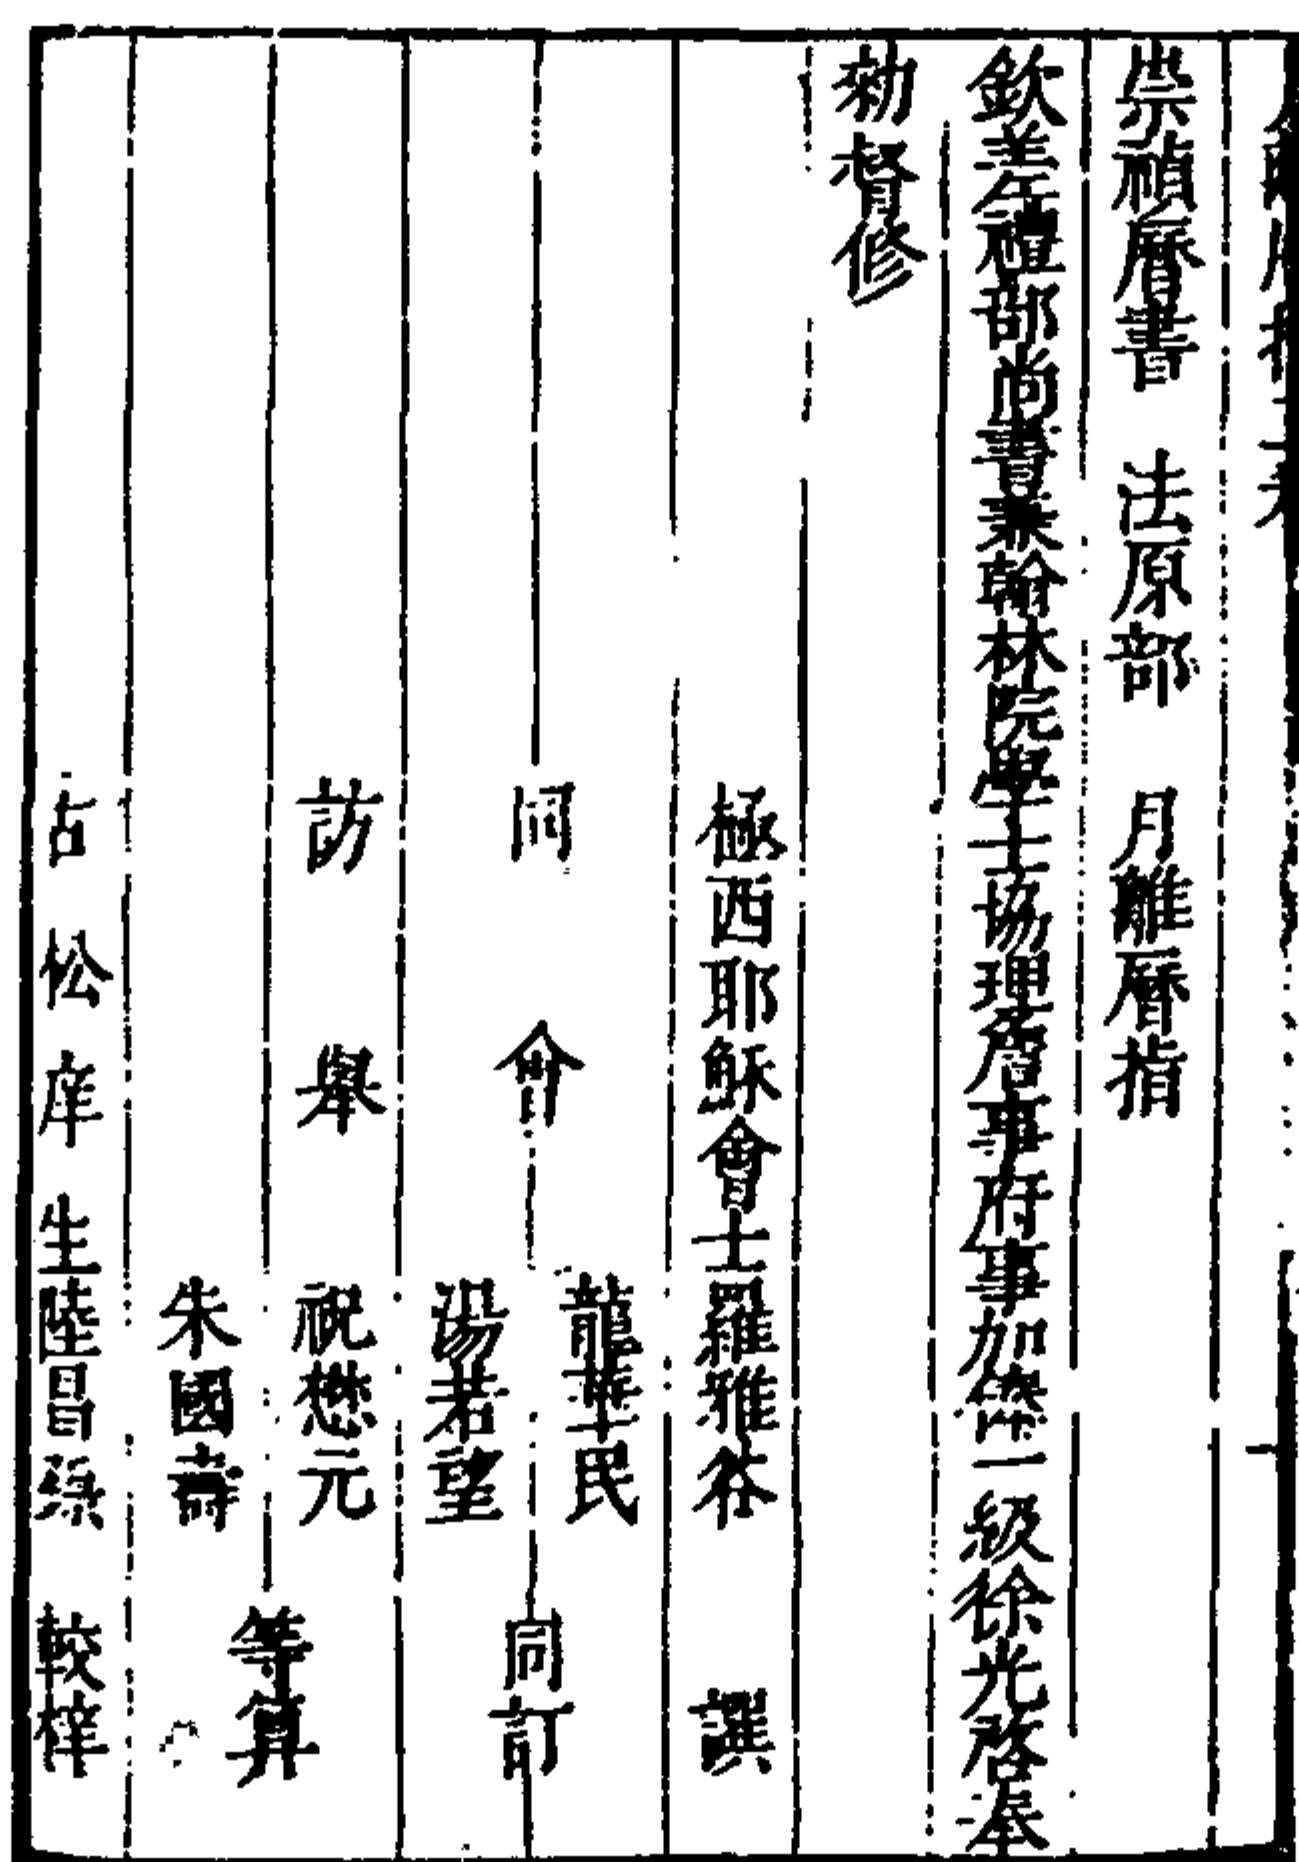 崇禎曆書　法原部　月離曆指
欽差禮部尚書兼翰林院學士協理詹事府事加俸一級徐光啓奉
勑督修
極西耶穌會士羅雅谷　譔
同會　龍華民
湯若望　同訂
訪舉　祝懋元
朱國壽　等算
古松庠生陸昌　較梓